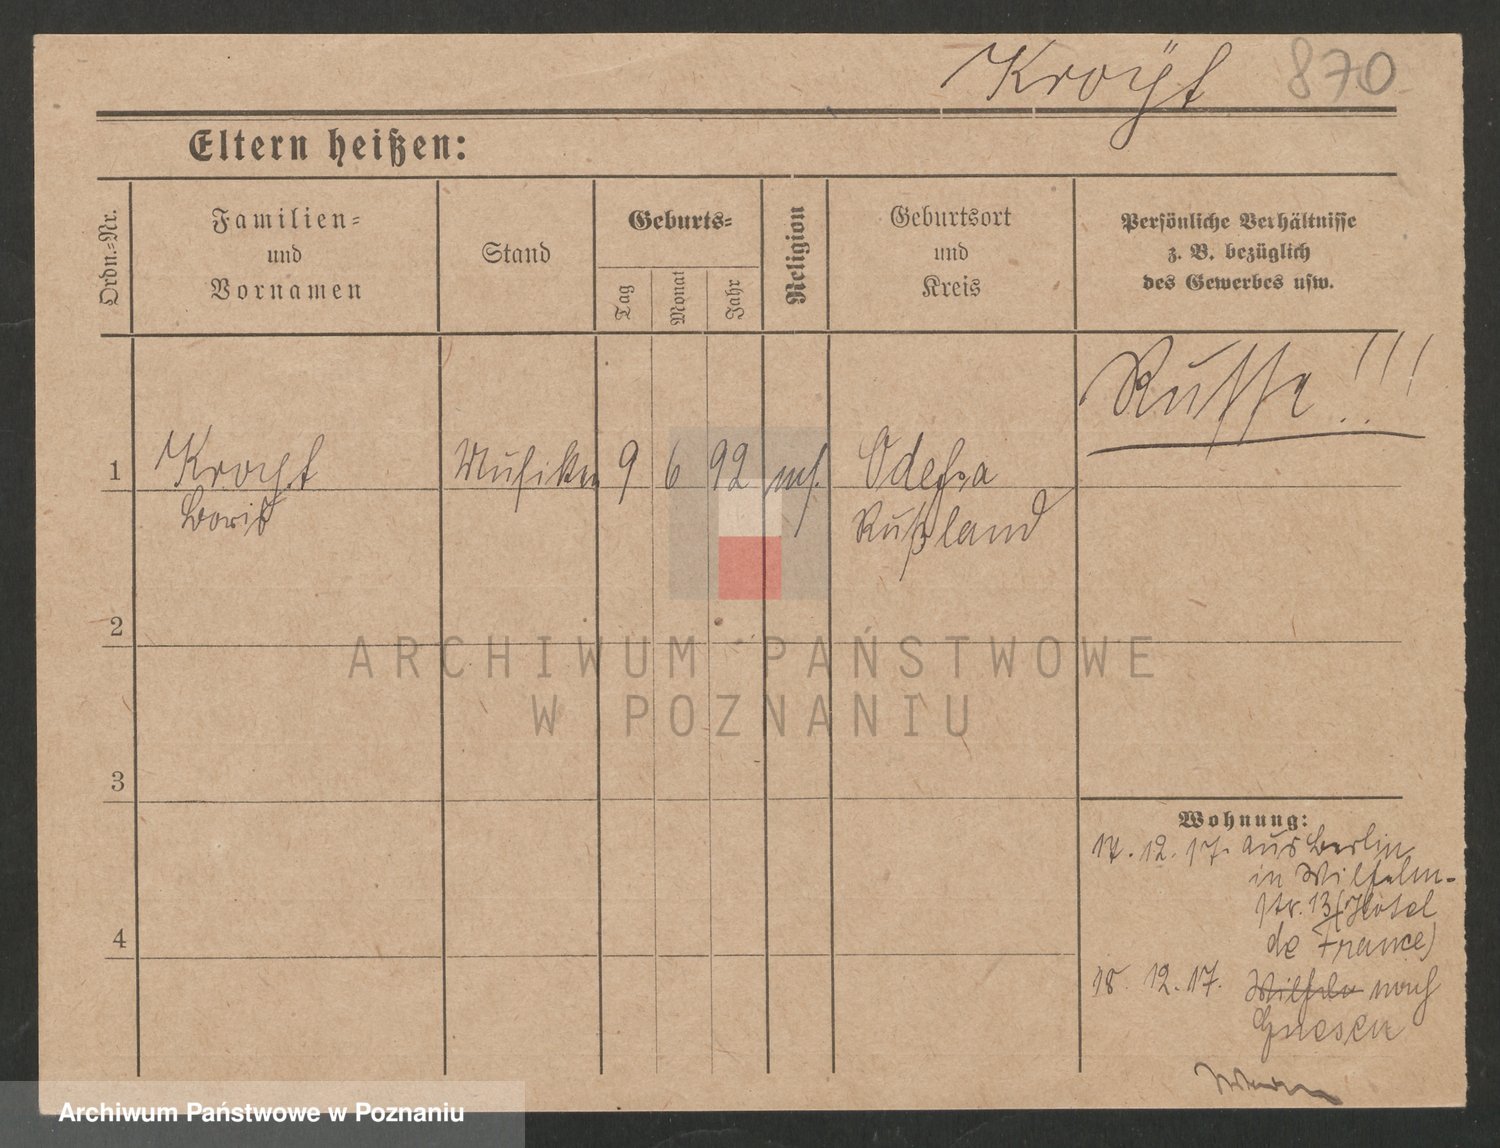 Kroÿt 870
Eltern heißen:
Ordn.=Nr.
Familien=
und
Vornamen
Stand
Geburts=
Tag
Monat
Jahr
Religion
Geburtsort
und
Kreis
Persönliche Verhältnisse
z. B. bezüglich
des Gewerbes usw.
Russe!!!
1 Kroyt Musiker 9 6 92 Odessa
Boris Rußland
2
3
4
Wohnung:
17. 12. 17. aus Berlin
in Wilhelm-
str. 13 (Hotel
de France)
18. 12. 17. Wilhelm nach
Gnesen
ARCHIWUM PAŃSTWOWE
W POZNANIU
Archiwum Państwowe w Poznaniu